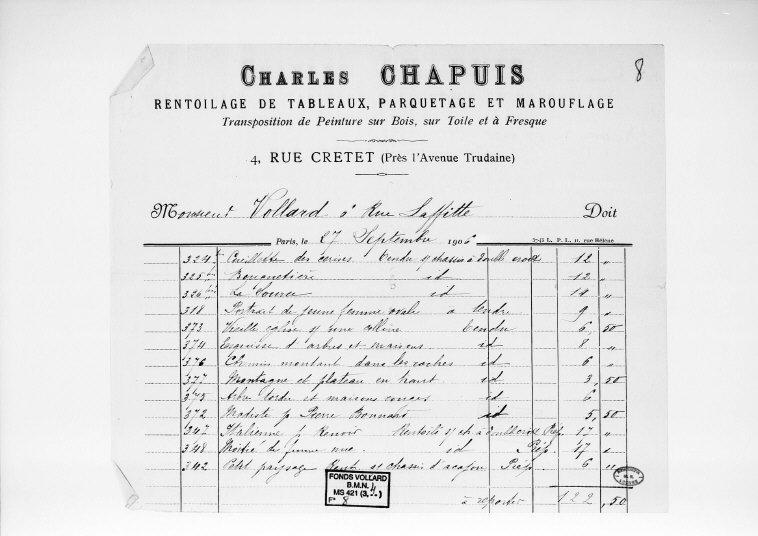 8
CHARLES CHAPUIS
RENTOILAGE DE TABLEAUX, PARQUETAGE ET MAROUFLAGE
Transposition de Peinture sur Bois, sur Toile et à Fresque
4, RUE CRETET (Près l'Avenue Trudaine)
Monsieur Vollard 6 Rue Laffitte Doit
Paris, le 27 Septembre 1906 P. L., 11, rue Hélène
324 Cueillette des cerises tendu s/ chassis à double croix 12 "
325 id 12 "
326 La id "
318 Portrait de jeune femme ovale a tendre 9 "
373 Vieille église s/ une colline tendu 6,50
374 Esquisse d'arbres et maisons id 8 "
376 Chemin montant dans les roches id 6 "
377 Montagne et plateau en haut id 3,50
375 Arbre tordu et maisons id 6
372 Modiste p Pierre Bonnard id 5,50
347 Italienne p Renoir 17 "
348 de femme nue. id 17 "
342 Petit paysage s/ chassis d'acajou 6 "
FONDS VOLLARD
B.M.N.
MS 421 (3,4)
F° 8
à reporter 122,50